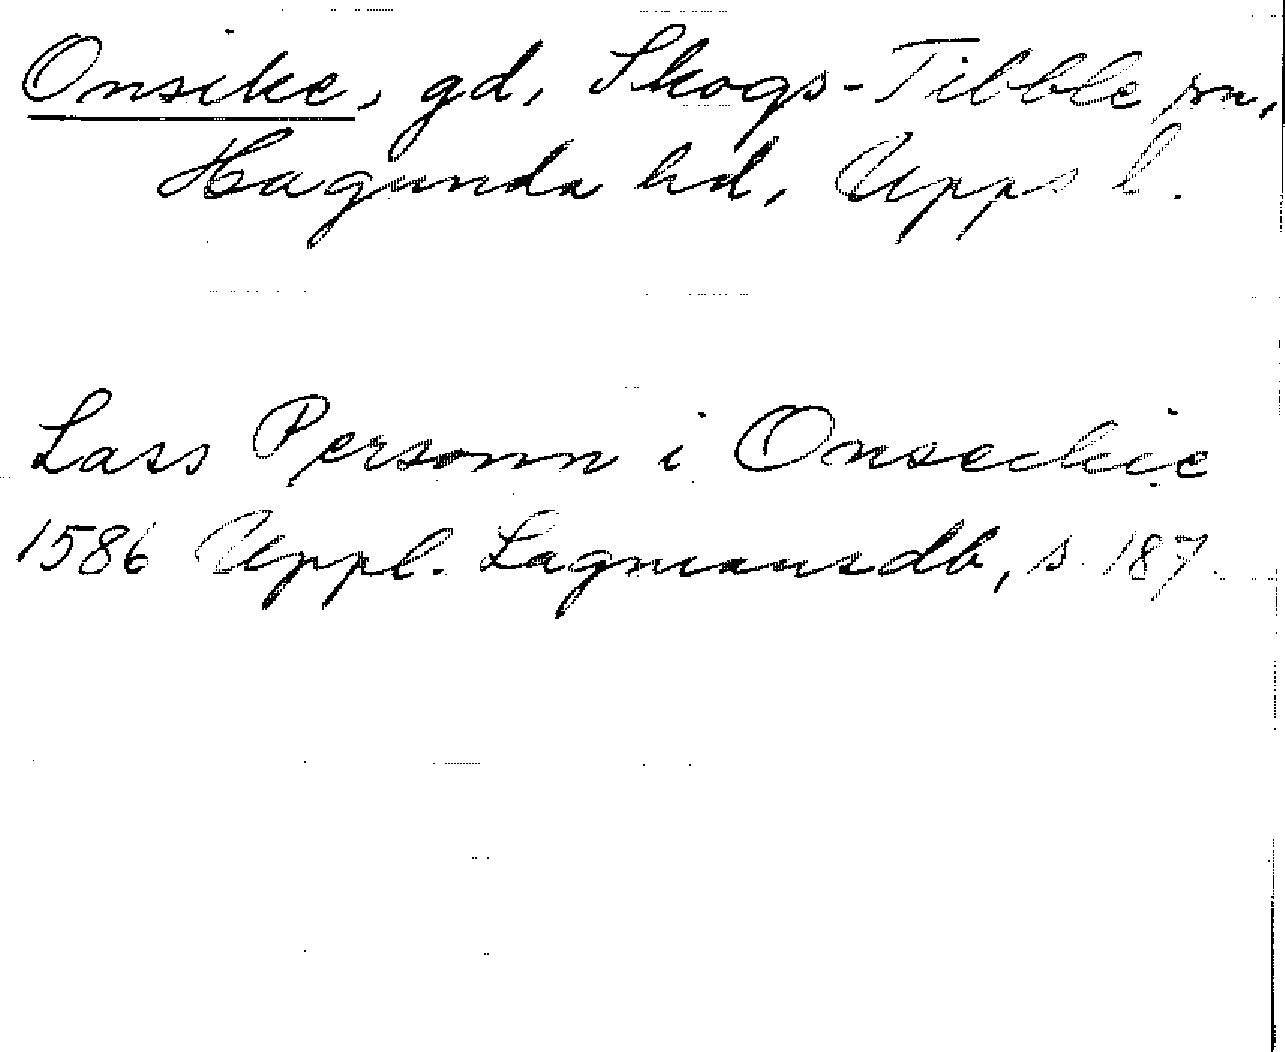 Onsike, gd, Skogs-Tibble sn,
Hagunda hd, Upps l.
Lass Personn i Onseckie
1586 Uppl. Lagmansdb, s. 187.